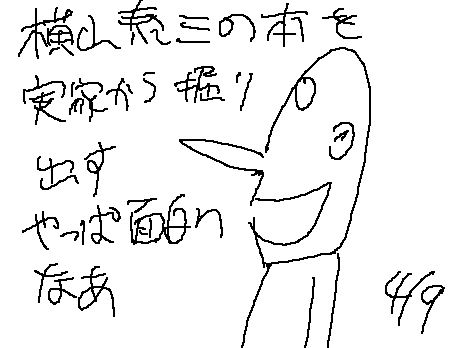 横山泰三の本を
実家から掘り
出す
やっぱ面白い
なあ
4/9